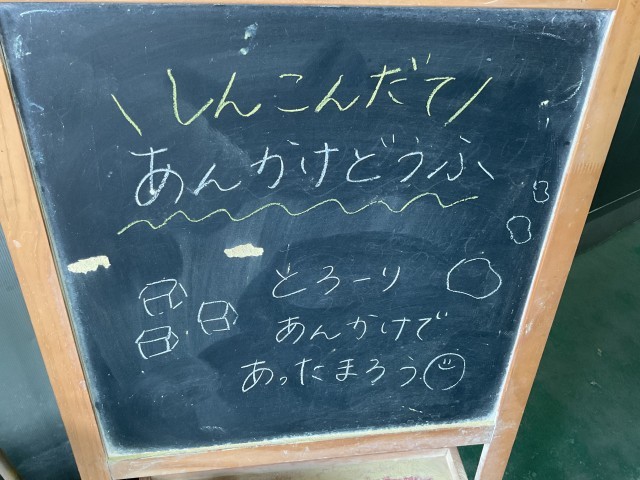 \しんこんだて/
あんかけどうふ
とろーり
あんかけで
あったまろう